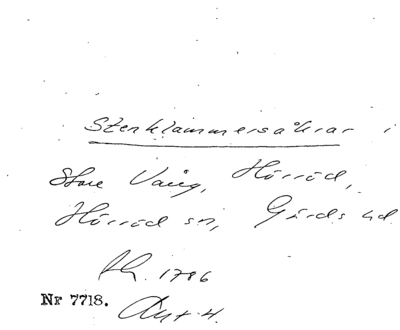 Stenklammersåkrar i
Store Vång, Hörröd,
Hörröd sn, Gärds hd
1786
Nr 7718.